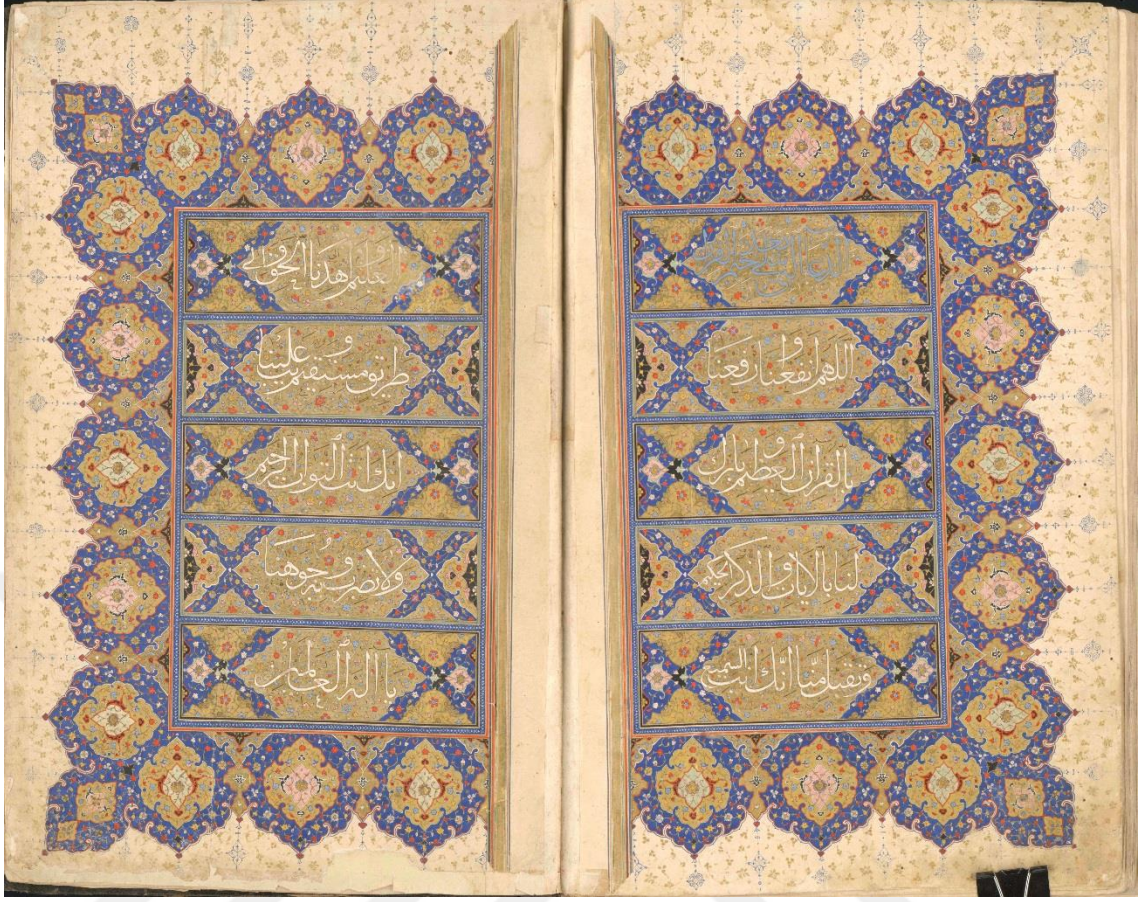 اللهم انفعنا وارفعنا
بالقرآن العظيم وبارك
لنا بالآيات والذكر الحكيم
وتقبل منا انك انت السميع
العليم وهدنا الحق والى
طريق مستقيم وتب علينا
انك انت التواب الرحيم
ولا تضرب وجوهنا
يا اله العالمين